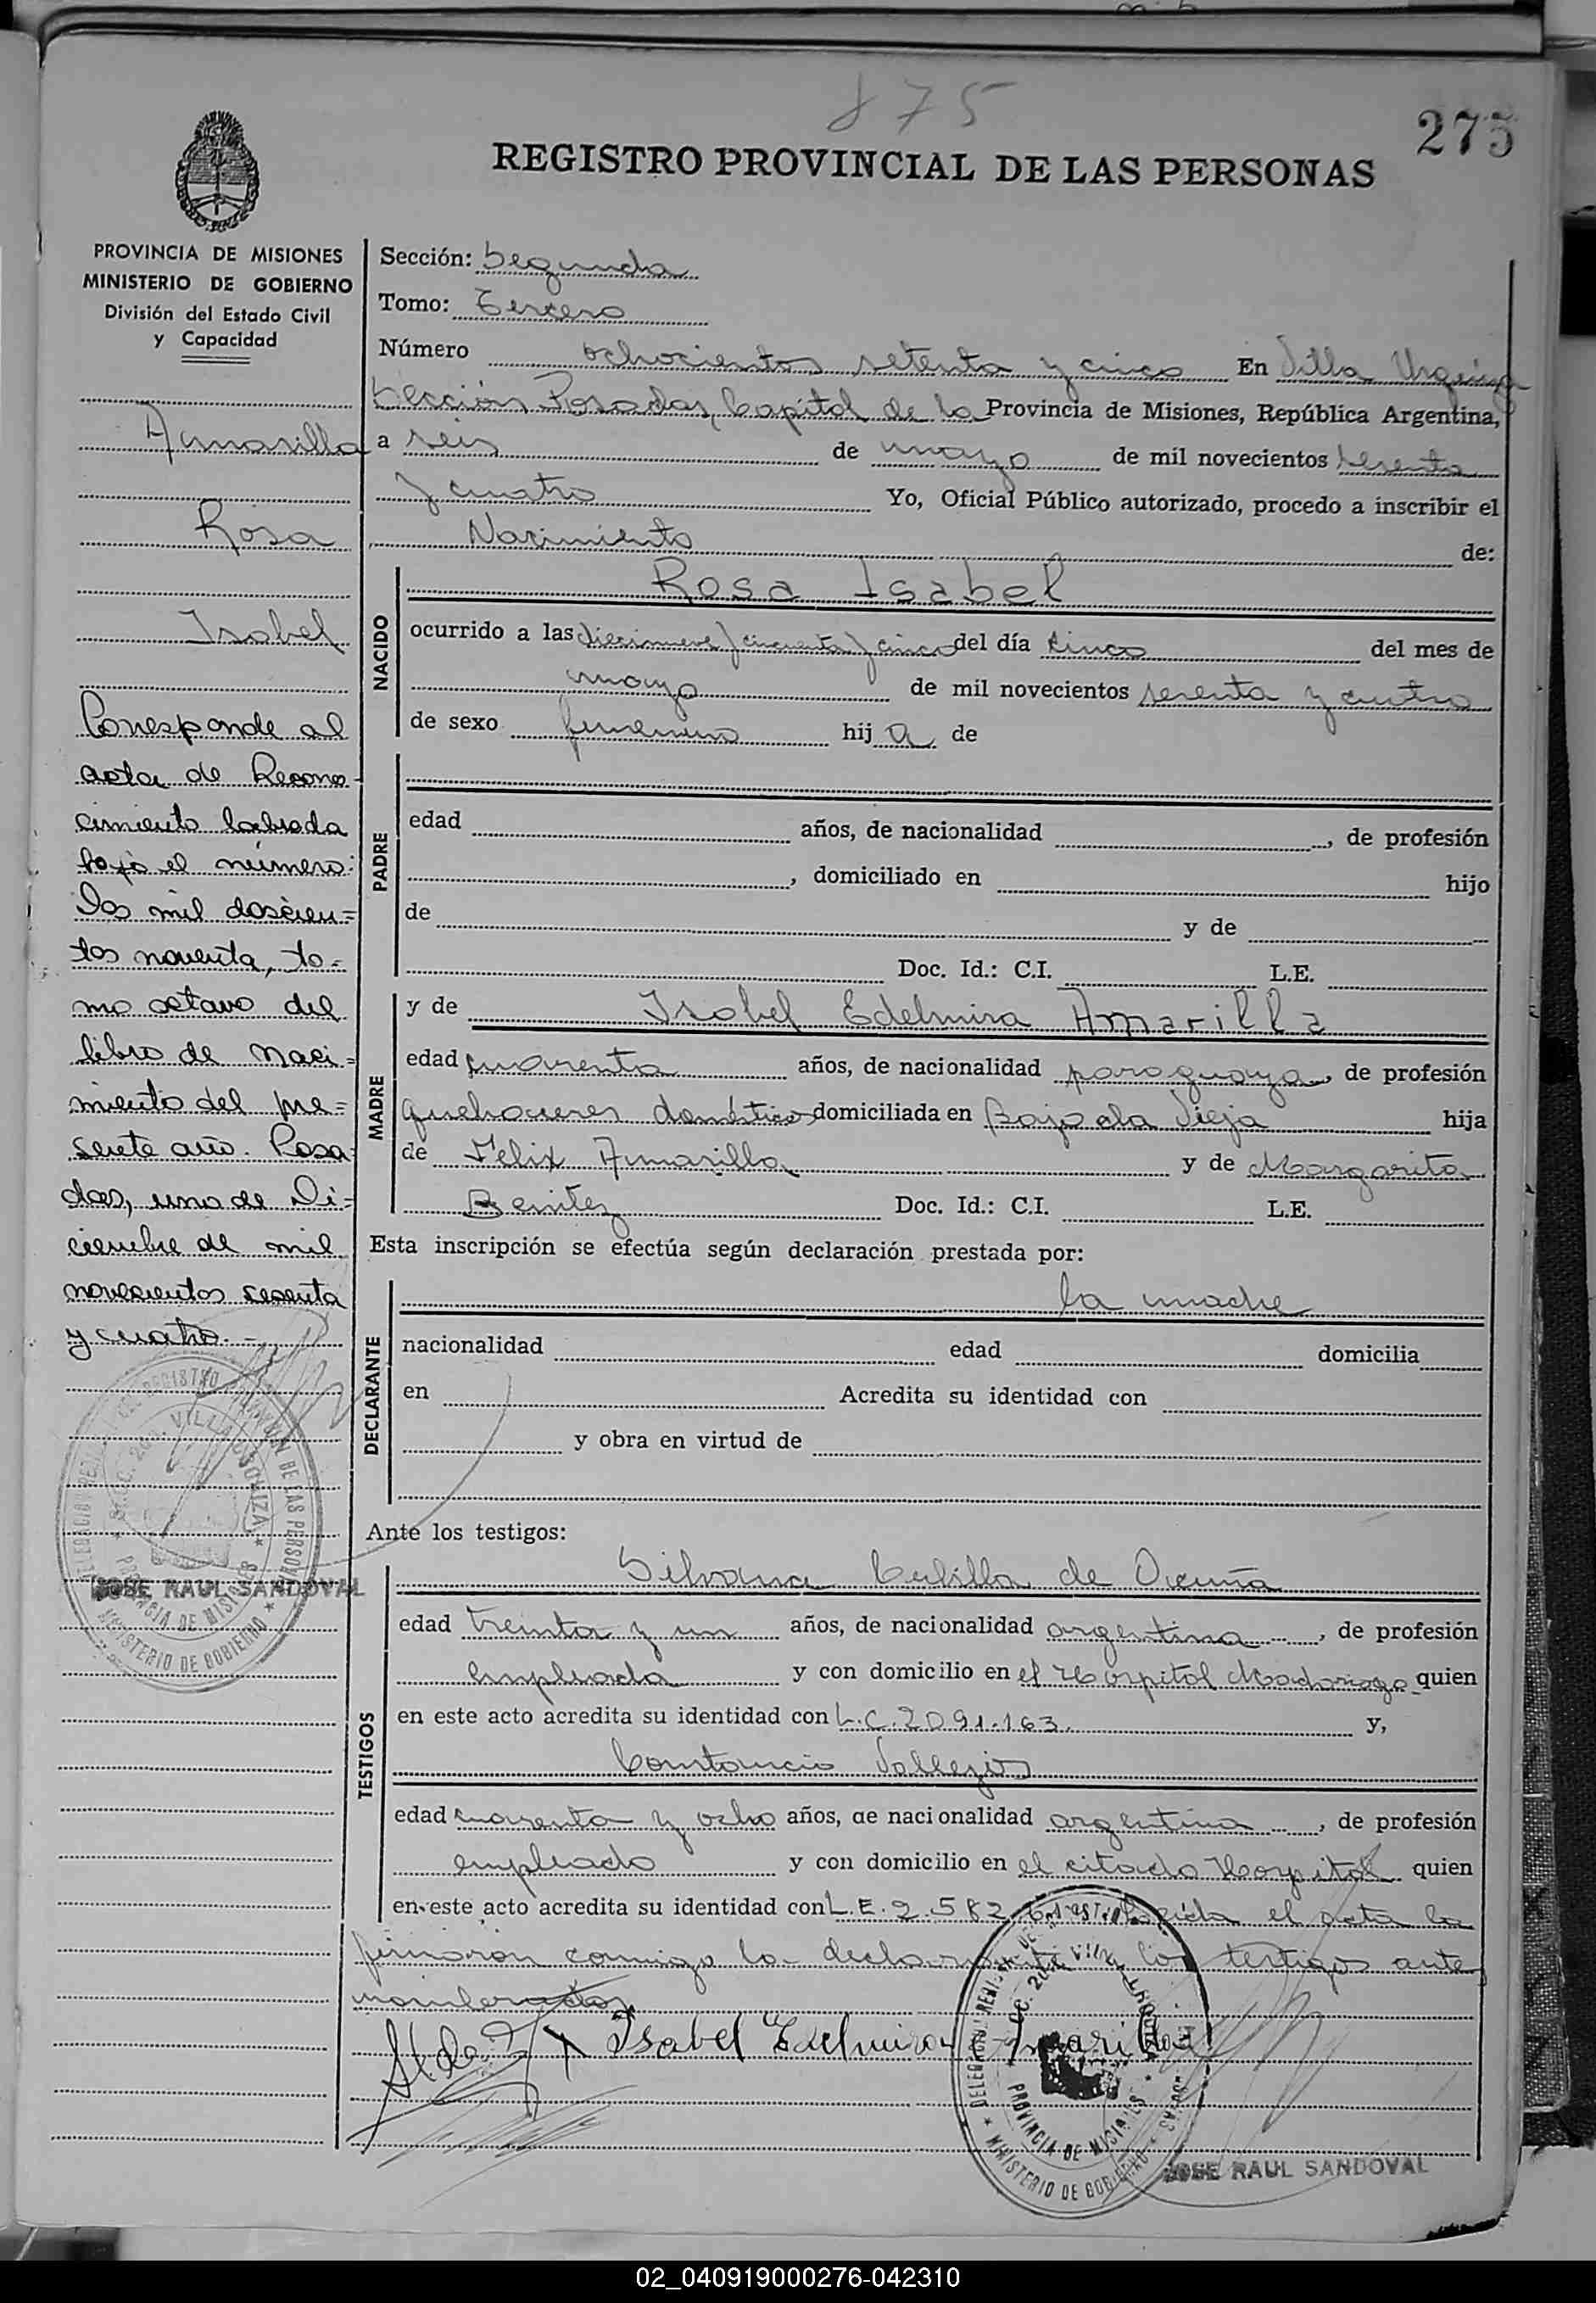 875
275
REGISTRO PROVINCIAL DE LAS PERSONAS
PROVINCIA DE MISIONES
MINISTERIO DE GOBIERNO
División del Estado Civil
y Capacidad
Amarilla
Rosa
Isabel
Corresponde al
acta de Recono
cimiento labrada
bajo el número:
Dos mil doscien=
tos noventa, to=
mo octavo del
libro de naci=
miento del pre=
sente año. Posa
das, uno de Di=
ciembre de mil
novecientos sesenta
y cuatro.-
JOSE RAUL SANDOVAL
Sección: Segunda
Tomo: Tercero
Número ochocientos setenta y cinco En Villa Urquiza
Sección Posadas, Capital de la Provincia de Misiones, República Argentina,
a seis de mayo de mil novecientos sesenta
y cuatro Yo, Oficial Público autorizado, procedo a inscribir el
Nacimiento de:
NACIDO
Rosa Isabel
ocurrido a las diecinueve y cincuenta y cinco del día cinco del mes de
mayo de mil novecientos sesenta y cuatro
de sexo femenino hij a de
PADRE
edad años, de nacionalidad , de profesión
, domiciliado en hijo
de y de
Doc. Id.: C.I. L.E.
MADRE
y de Isabel Edelmira Amarilla
edad cuarenta años, de nacionalidad paraguaya, de profesión
quehaceres domésticos domiciliada en Bajada Vieja hija
de Felix Amarilla y de Margarita
Benitez Doc. Id.: C.I. L.E.
Esta inscripción se efectúa según declaración prestada por:
DECLARANTE
la madre
nacionalidad edad domicilia
en Acredita su identidad con
y obra en virtud de
Ante los testigos:
TESTIGOS
Silvana de Ocuña
edad treinta y un años, de nacionalidad argentina, de profesión
empleada y con domicilio en el Hospital Madariaga quien
en este acto acredita su identidad con L.C. 2091.163. y,
Constancio Vallejos
edad cuarenta y ocho años, de nacionalidad argentina, de profesión
empleado y con domicilio en el citado Hospital quien
en este acto acredita su identidad con L.E. 2.582 leída el acta la
firmaron conmigo la declarante y los testigos ante
nombrados
Isabel Edelmira Amarilla
PROVINCIA DE MISIONES
MINISTERIO DE GOBIERNO
JOSE RAUL SANDOVAL
02_040919000276-042310